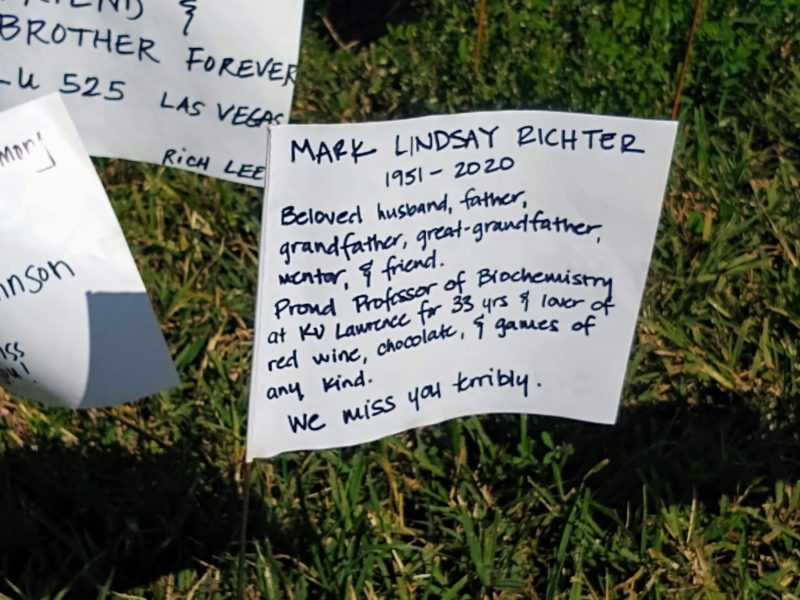 BROTHER FOREVER
LU 525 LAS VEGAS
RICH LEE
MARK LINDSAY RICHTER
1951 - 2020
Beloved husband, father,
grandfather, great-grandfather,
mentor, & friend.
Proud Professor of Biochemistry
at KU Lawrence for 33 yrs & lover of
red wine, chocolate, & games of
any kind.
We miss you terribly.